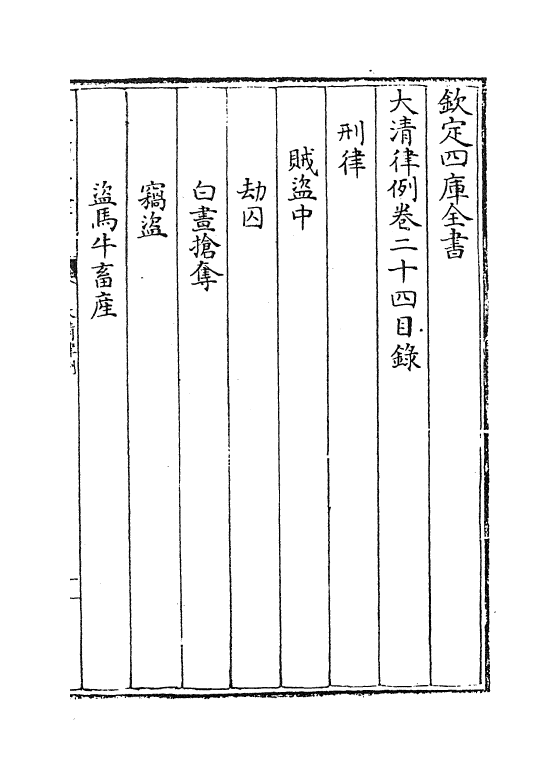 欽定四庫全書
大清律例卷二十四目錄
刑律
賊盜中
劫囚
白晝搶奪
竊盜
盜馬牛畜產